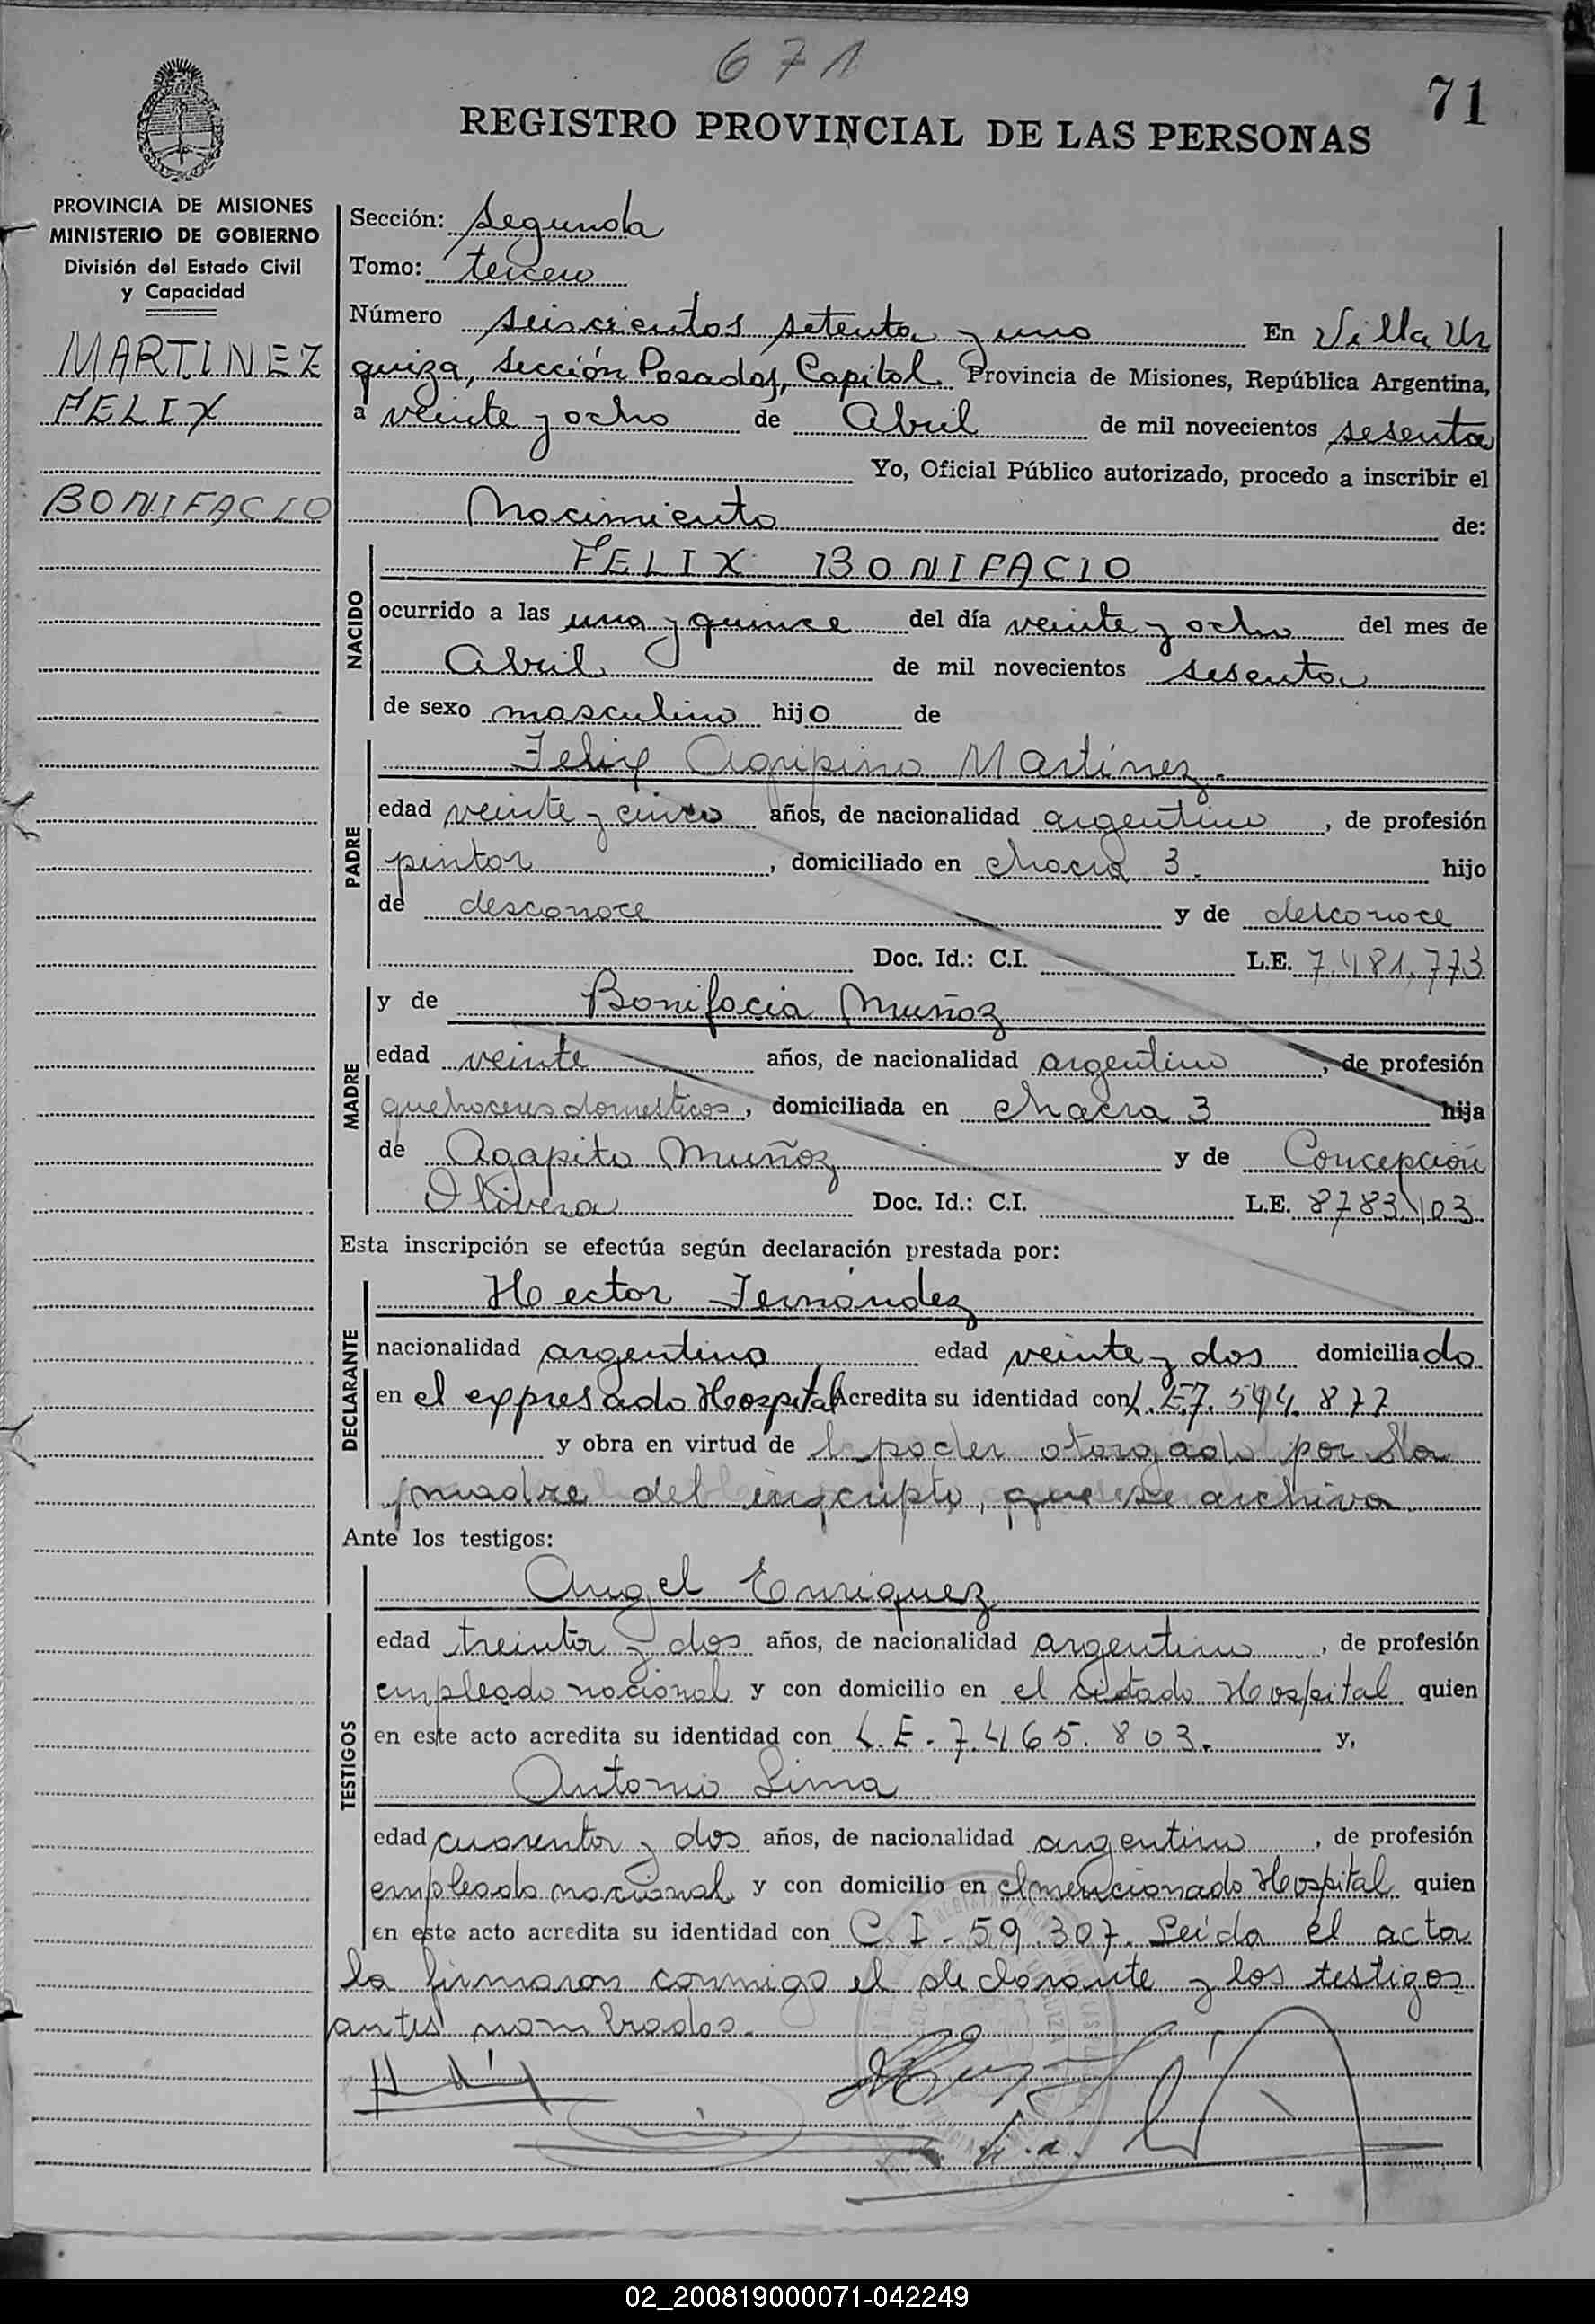 671
71
REGISTRO PROVINCIAL DE LAS PERSONAS
PROVINCIA DE MISIONES
MINISTERIO DE GOBIERNO
División del Estado Civil
y Capacidad
MARTINEZ
FELIX
BONIFACIO
Sección: segunda
Tomo: tercero
Número seiscientos setenta y uno En Villa Ur
quiza, Sección Posadas, Capital Provincia de Misiones, República Argentina,
a veinte y ocho de Abril de mil novecientos sesenta
Yo, Oficial Público autorizado, procedo a inscribir el
Nacimiento de:
NACIDO
FELIX BONIFACIO
ocurrido a las una y quince del día veinte y ocho del mes de
Abril de mil novecientos sesenta
de sexo masculino hijo de
PADRE
Felix Agripino Martínez.
edad veinte y cinco años, de nacionalidad argentino, de profesión
pintor, domiciliado en chacra 3. hijo
de desconoce y de desconoce
Doc. Id.: C.I. L.E. 7.481.773
MADRE
y de Bonifacia Muñoz
edad veinte años, de nacionalidad argentina, de profesión
quehaceres domesticos, domiciliada en chacra 3 hija
de Agapito Muñoz y de Concepción
Olivera Doc. Id.: C.I. L.E. 8783103
Esta inscripción se efectúa según declaración prestada por:
DECLARANTE
Hector Fernández
nacionalidad argentino edad veinte y dos domiciliado
en el expresado Hospital Acredita su identidad con L.E 7.544.877
y obra en virtud de poder otorgado por la
madre del inscripto, que se archiva
Ante los testigos:
TESTIGOS
Angel Enriquez
edad treinta y dos años, de nacionalidad argentino, de profesión
empleado nacional y con domicilio en el citado Hospital quien
en este acto acredita su identidad con L.E. 7.465.803. y,
Antonio Lima
edad cuarenta y dos años, de nacionalidad argentino, de profesión
empleado nacional y con domicilio en el mencionado Hospital quien
en este acto acredita su identidad con C.I. 59.307. Leída el acta
la firmaron conmigo el declarante y los testigos
antes nombrados.
02_200819000071-042249